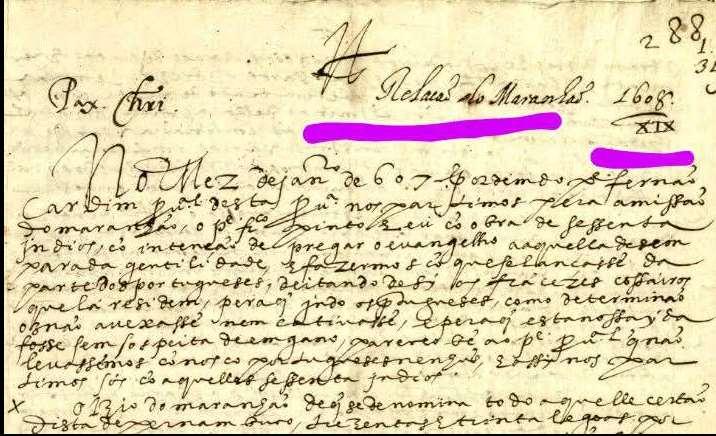 288
Pax Chri.
Relação do Maranhão. 1608.
XIX
No Mez de jan.ro de 607. por ordem do p.e fernão
Cardim p.al desta p.a nos partimos pera a missão
do maranhão, o p.e f.co pinto e eu cõ obra de sessenta
indios, cõ intenção de pregar o evangelho a aquella desem
parada gentilidade, e fazermos cõ que se lancasse da
parte dos portugueses, deitando de sy os frãcezes cossairos
que lá residem, pera q̃ indo os portugueses, como determinão
os não avexassẽ nem cativassẽ, e pera q̃ esta nossa yda
fosse sem sospeita de engano, pareceo bẽ ao p.e p.al q̃ não
levassemos cõnosco portugueses nenhũs, e assy nos par
timos sós cõ aquelles sessenta indios.
x O Rio do maranhão de q̃ se denomina todo aquelle certão
dista de pernambuco, trezentas e trinta legoas por